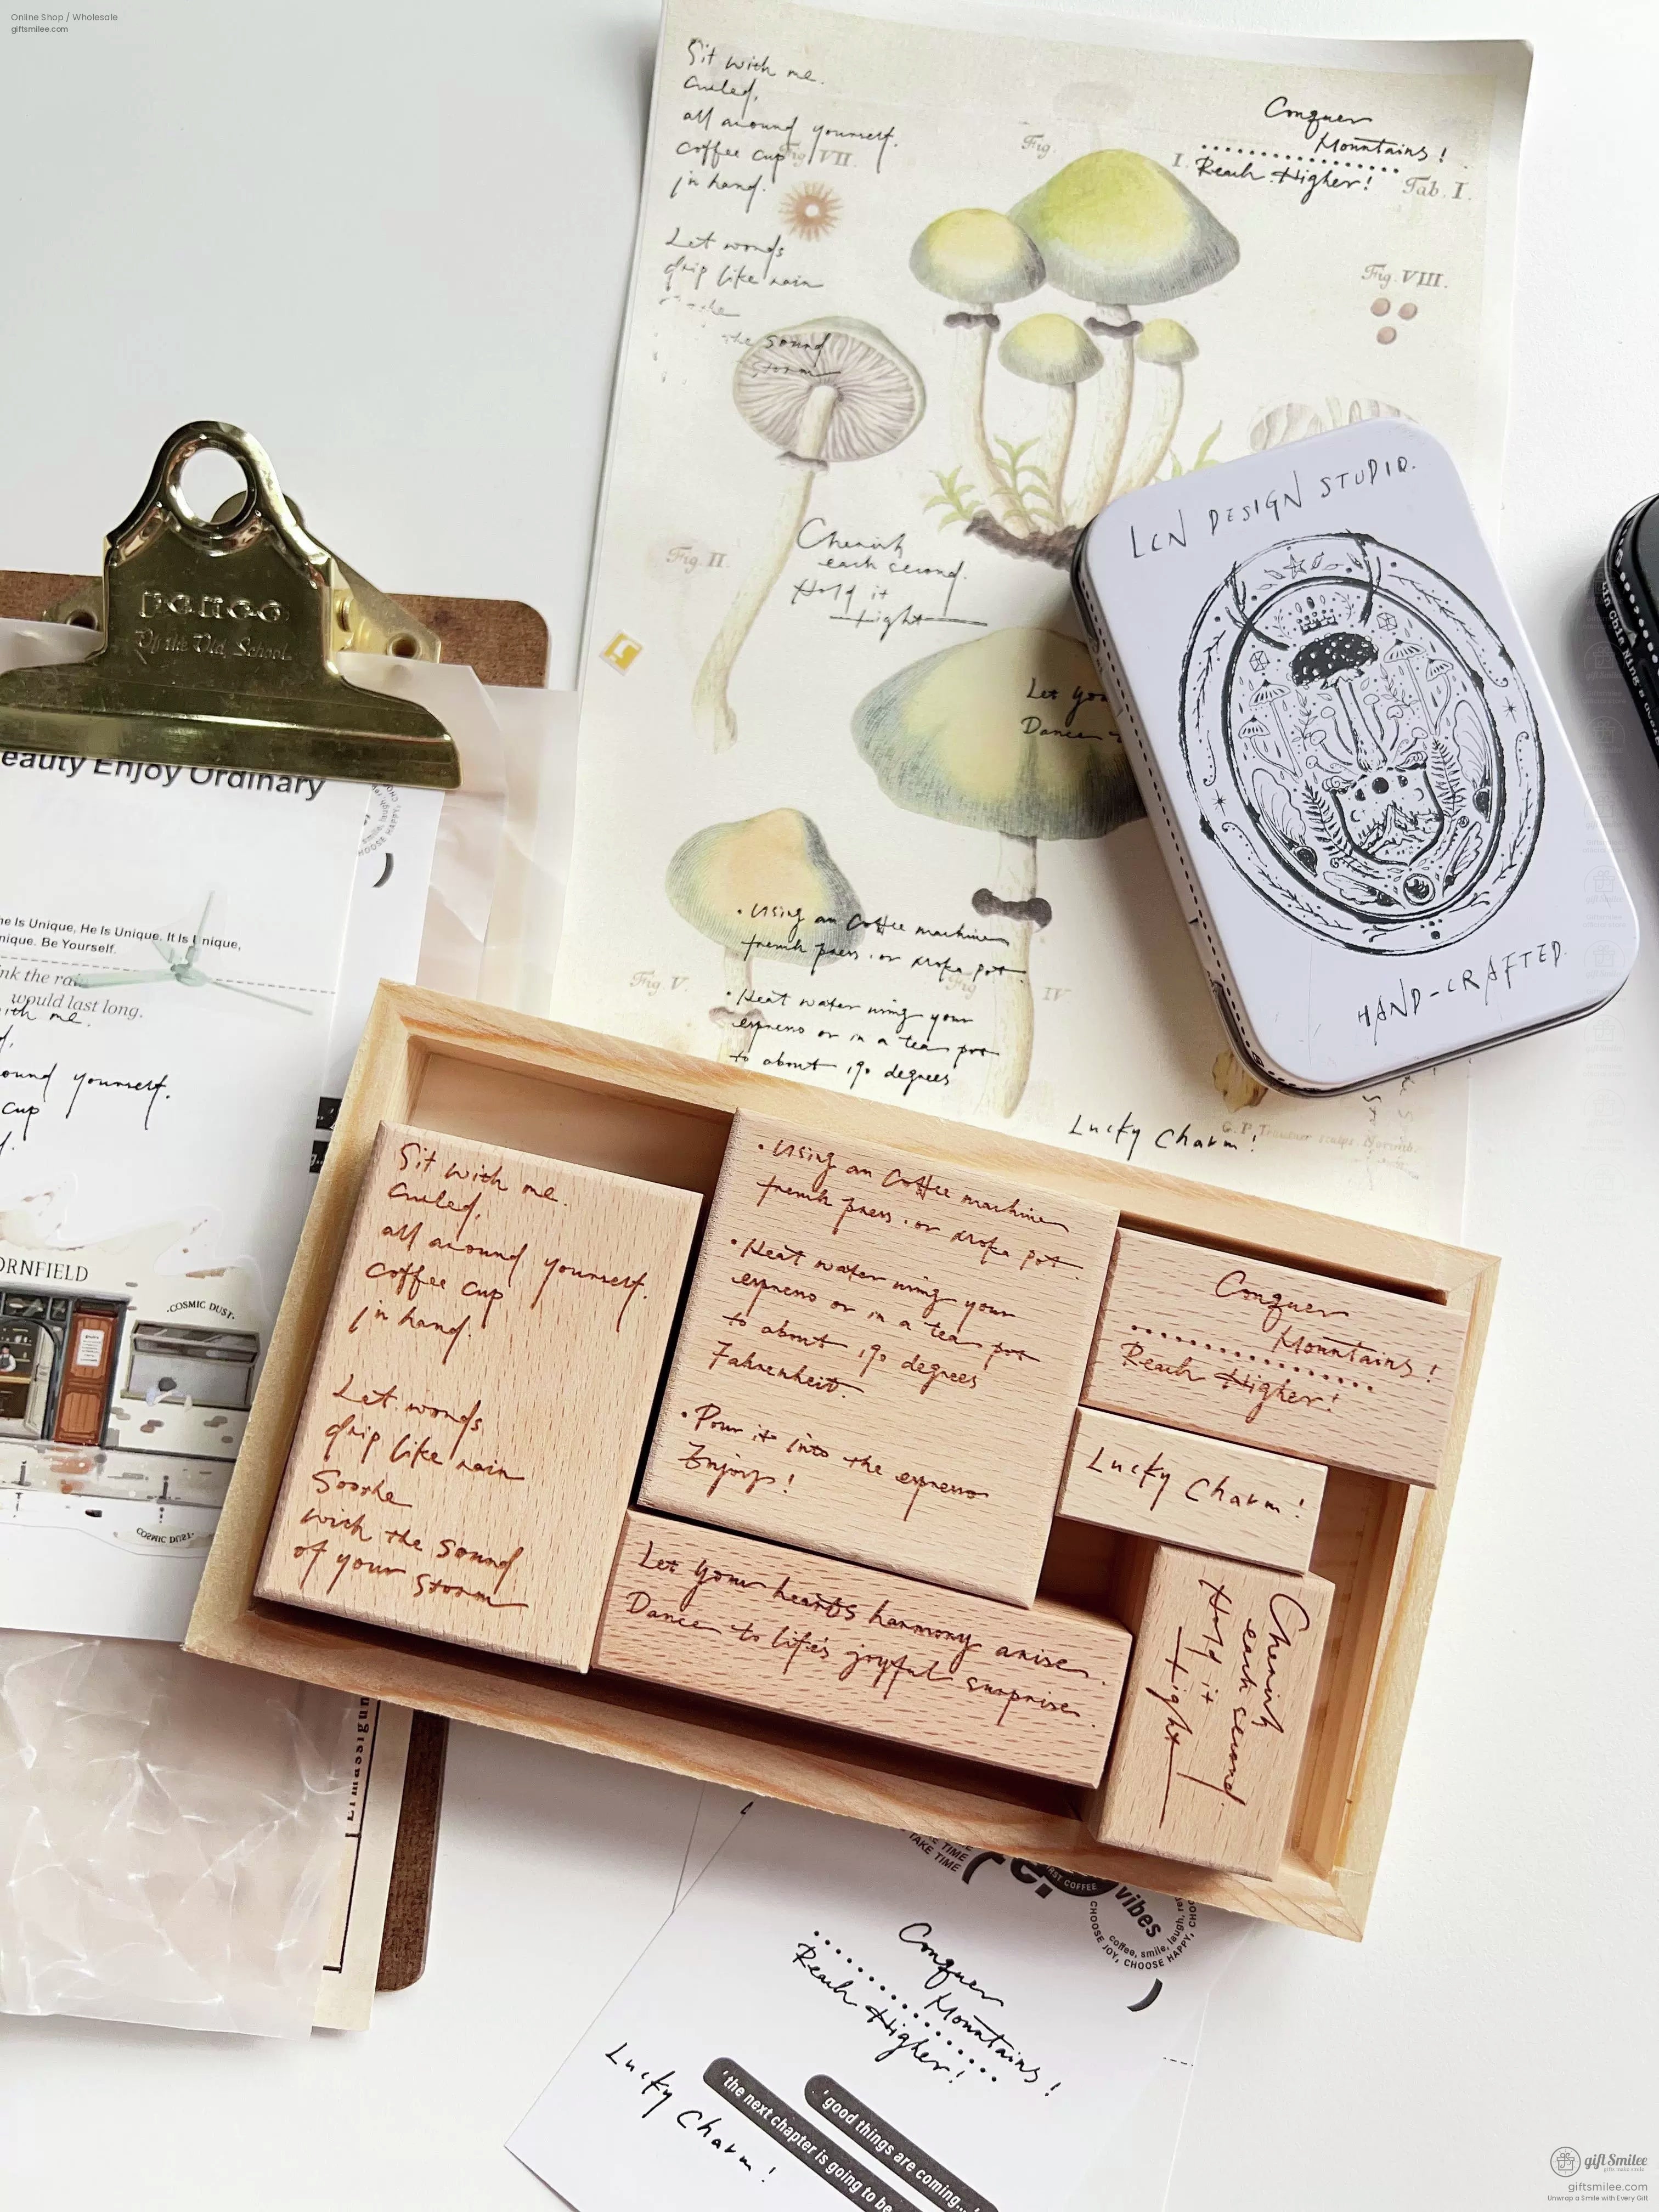 Online Shop / Wholesale
giftsmilee.com
Sit with me.
Curled,
all around yourself.
coffee cup
in hand.
Let words
drip like rain
the sound
storm
Conquer
Mountains!
Reach Higher!
Fig. VII.
Fig.
I.
Tab. I.
Fig. VIII.
Fig. II.
Cherish
each second.
Hold it
tight
Let you
Dance
• Using an Coffee machine
french press . or moka pot.
• Heat water using your
espresso or in a tea pot
to about 190 degrees
Fig. V.
Fig
IV
Lucky Charm!
LCN DESIGN STUDIO.
HAND-CRAFTED.
penco
Of the Old School.
eauty Enjoy Ordinary
he Is Unique, He Is Unique. It Is Unique,
nique. Be Yourself.
nk the rain
would last long.
ith me.
ound yourself.
cup
ORNFIELD
·COSMIC DUST·
COSMIC DUST·
Sit with me.
Curled,
all around yourself.
coffee cup
in hand.
Let words
drip like rain
Soothe
with the sound
of your storm
• Using an Coffee machine
french press . or moka pot.
• Heat water using your
espresso or in a tea pot
to about 190 degrees
Fahrenheit.
• Pour it into the espresso
Enjoy!
Conquer
Mountains!
Reach Higher!
Lucky Charm!
Let your hearts harmony arise.
Dance to life's joyful surprise.
Cherish
each second.
Hold it
tight
TAKE TIME
RST COFFEE
vibes
coffee, smile, laugh, re
CHOOSE JOY, CHOOSE HAPPY, CHO
Conquer
Mountains!
Reach Higher!
Lucky Charm!
'good things are coming...
'the next chapter is going to be
gift Smilee
giftsmilee.com
Unwrap a Smile with Every Gift